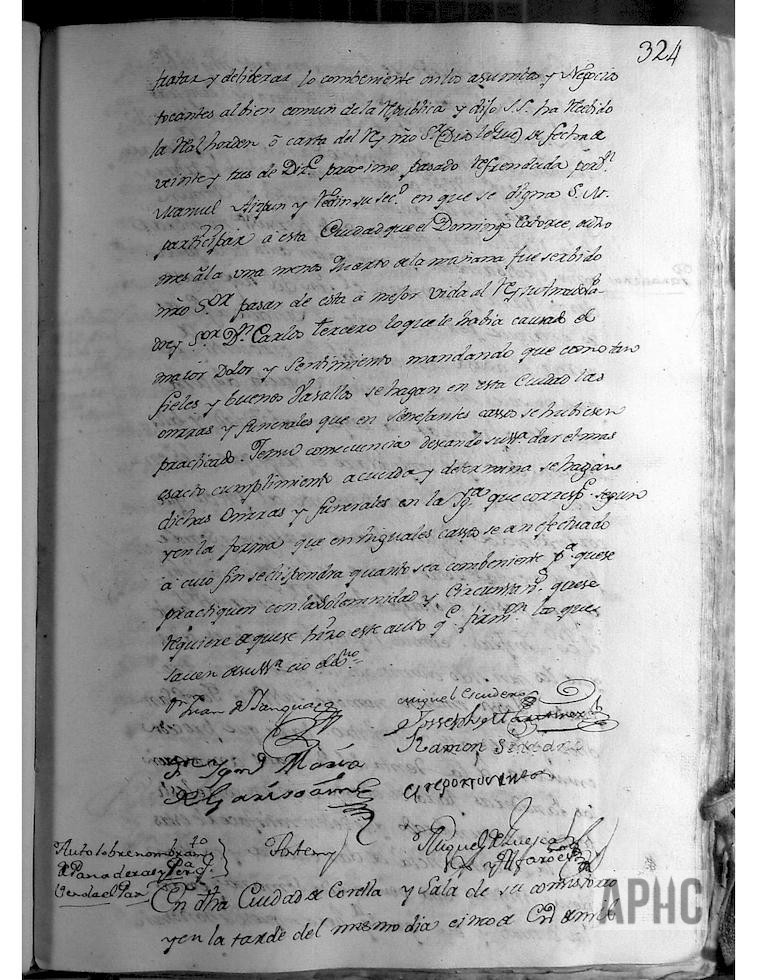 324
tratar y deliberar lo combeniente en los asumtos y Negocios
tocantes al bien comun de la Republica y dijo S.S. ha recibido
la Real horden o carta del Rey nro Sr (Dios le gue) de fecha de
veinte y tres de Dizre proximo pasado Refrendada por Dn
Manuel Aizpun y Redin su secro en que se digna S. M.
participar a esta Ciudad que el Domingo Catorce, de dicho
mes a la una menos quarto de la mañana fue serbido
nro Sor pasar de esta a mejor vida al Rey su
Sor Dn Carlos tercero lo que le habia causado el
maior Dolor y Sentimiento mandando que como tan
fieles y buenos Vasallos se hagan en esta Ciudad las
onrras y funerales que en semejantes casos se hubiesen
practicado. Y en su consecuencia deseando su ssa dar el mas
esacto cumplimiento acuerda y determina se hagan
dichas Onrras y funerales en la que corresp. segun
y en la forma que en higuales casos se an efectuado
a cuio fin se dispondra quanto sea combeniente pa que se
practiquen con la Solemnidad y Circunstans que se
requiere de que se hizo este auto qe firmon los que
saven de su ssa e io el Esno
Dn Juan de
Miguel Escudero
Joseph Martinez
Ramon
Dn Igno Maria
de
Ante my
Miguel de Huesca
y Alfaro Esno
Auto sobre nombramto
de Panaderas y Pera
Vender el Pan
En dha Ciudad de Corella y Sala de su consistorio
y en la tarde del mismo dia cinco de Eno de mil
APHC